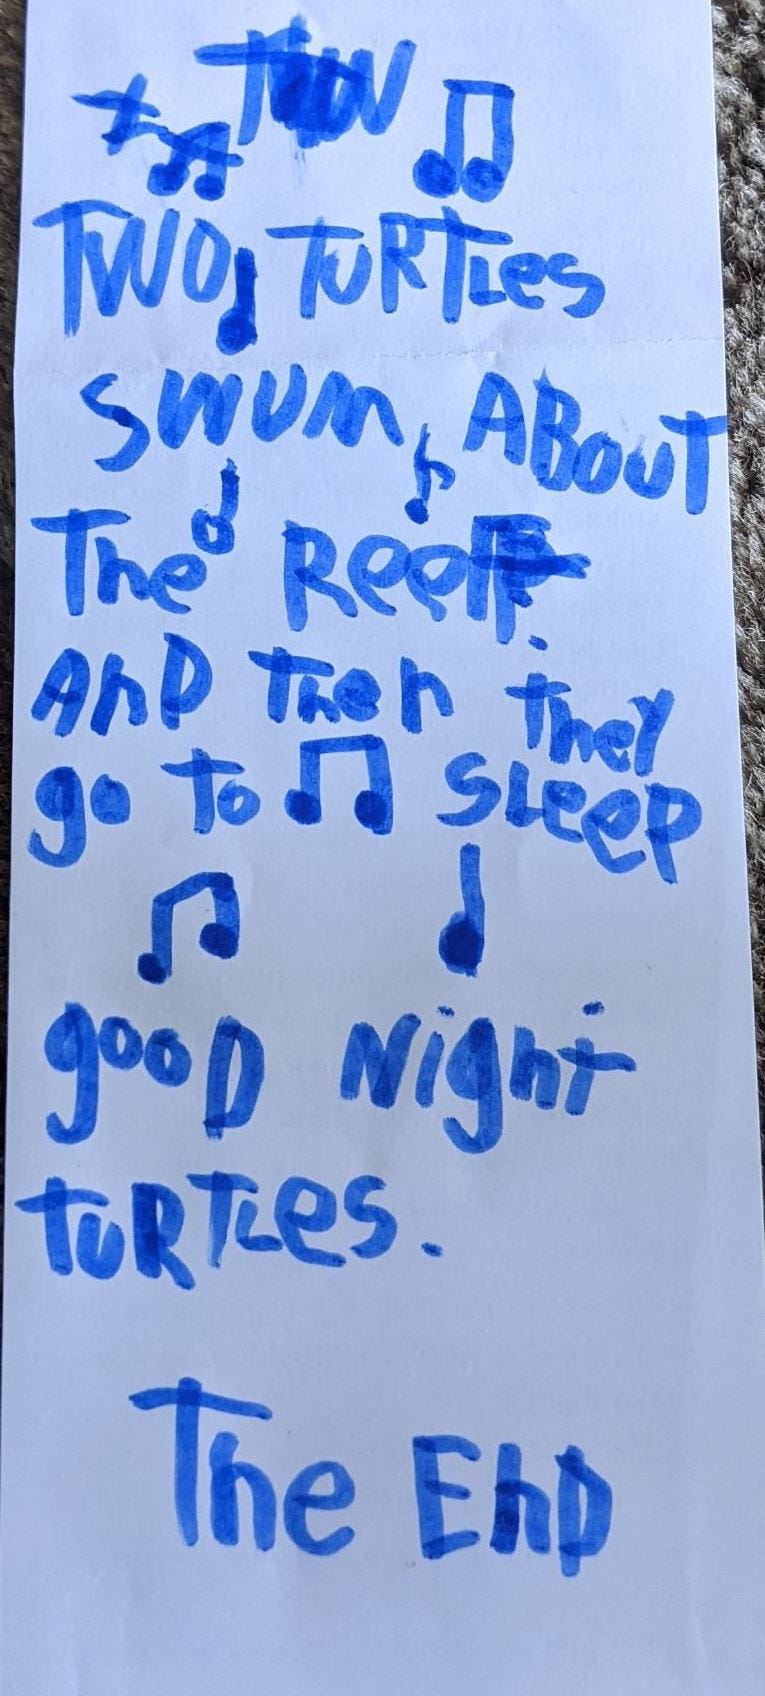 TWO TURTLes
SWUM ABOUT
The Reef.
AnD Then They
go To SLeeP
gooD Night
TURTLes.
The EnD